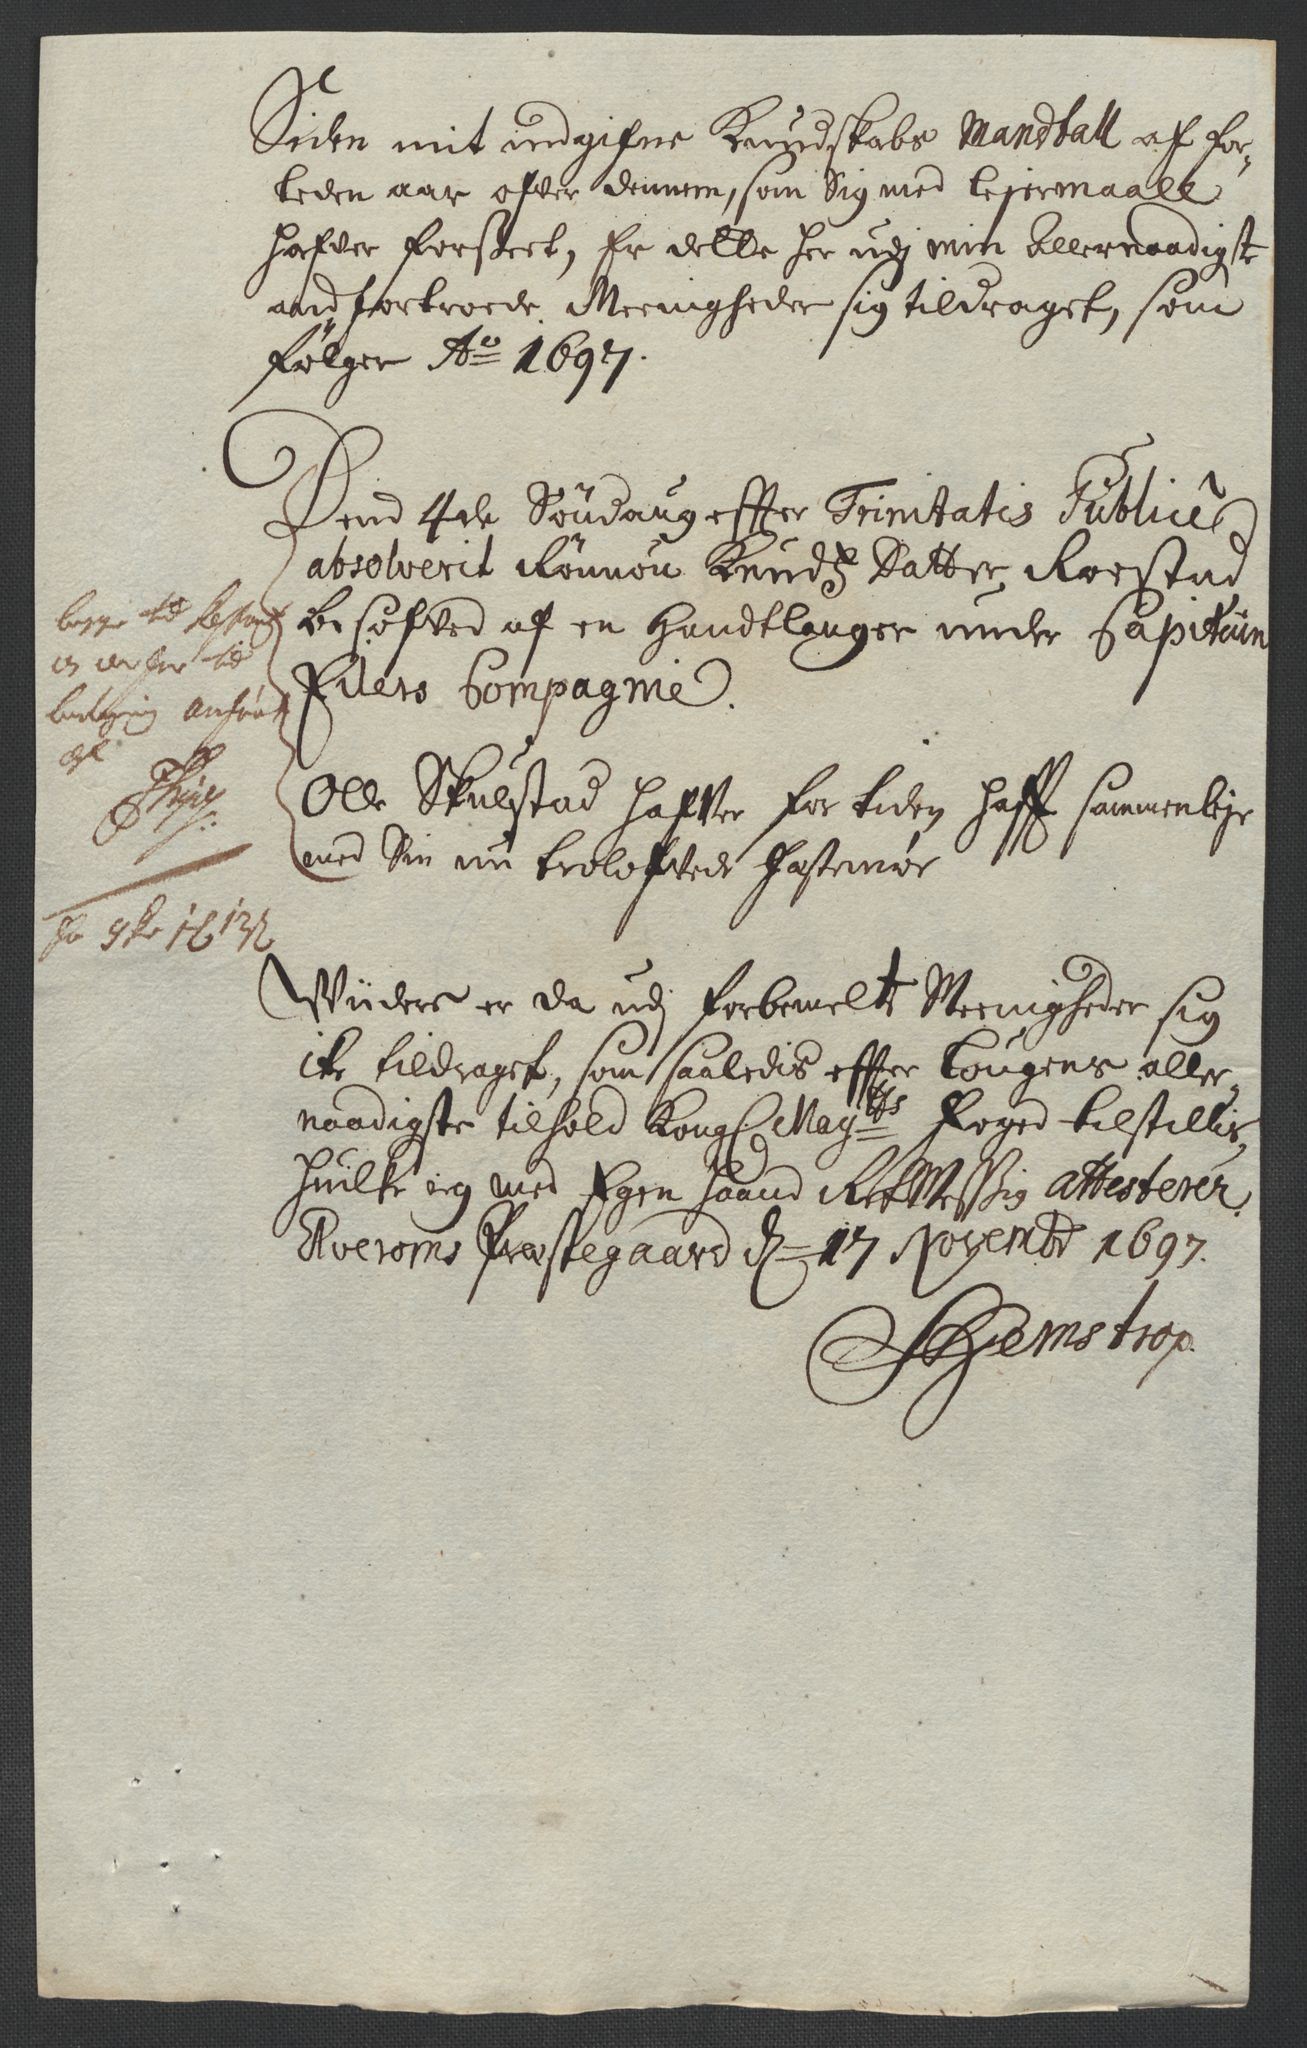 Siden mit indgifne Kundskabs Mandtall af for-
leden aar ofver dennem, som Sig med lejermaall
hafver forseet, er dette her udj min Allernaadigst
andfortroede Meenigheder sig tildraget, som
følger Ao 1697.
Dend 4de Söndaug effter Trinitatis Publice
absolverit Rönnou Knudz Datter Roestad
besofved af en Handtlanger under Capitain
Eilers Compagnie.
Olle Skulstad hafver for tiden hafft sammenleje
med Sin nu trolofvede fæstemøe
Wiidere er da udj forbemelte Meenigheder sig
icke tildraget, som saaledis effter Lougens aller-
naadigste tilhold Kongl. Mayttz Foged tilstillis,
huilket ieg med Egen haand RetMessig attesterer.
Qveroms Præstegaard d. 17 Novembr 1697.
Hiemstrop.
begge till
till
anført